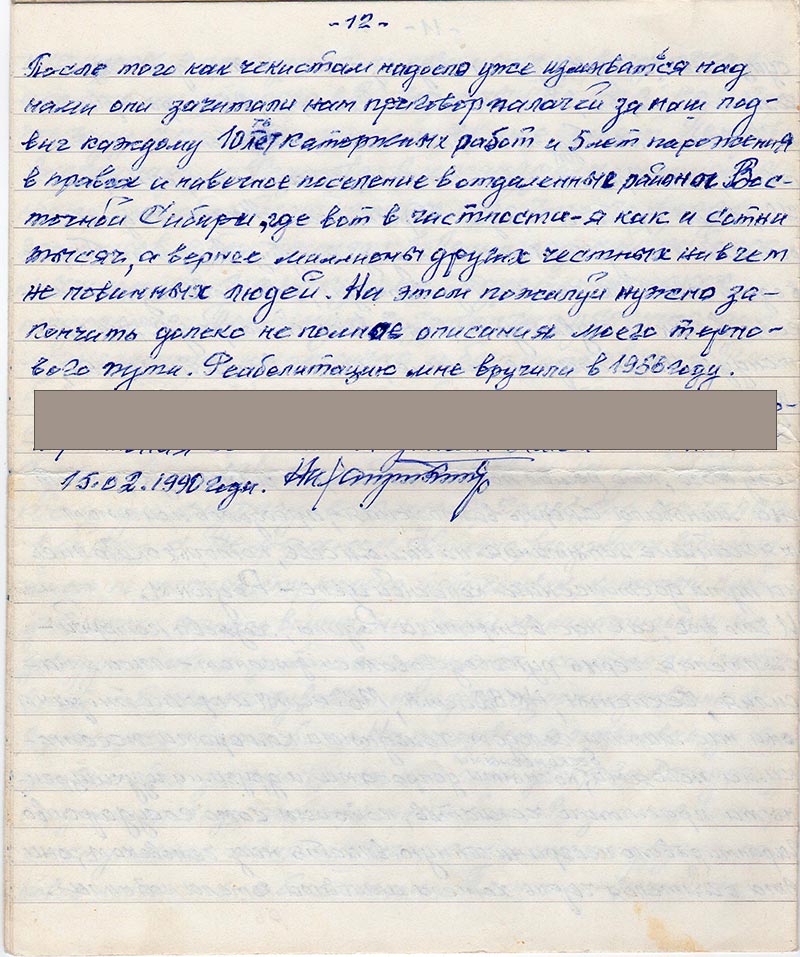 -12-
После того как чекистам надоело уже измываться над
нами они зачитали нам приговор палачей за наш под-
виг каждому 10ть лет каторжных работ и 5 лет паражения
в правах и навечное поселение в отдаленные районы Вос-
точной Сибири, где вот в частности-я как и сотни
тысяч, а вернее миллионы других честных ни в чем
не повинных людей. На этом пожалуй нужно за-
кончить далеко не полное описания моего терно-
вого пути. Реаболитацию мне вручили в 1966 году.
15.02.1990 годи.